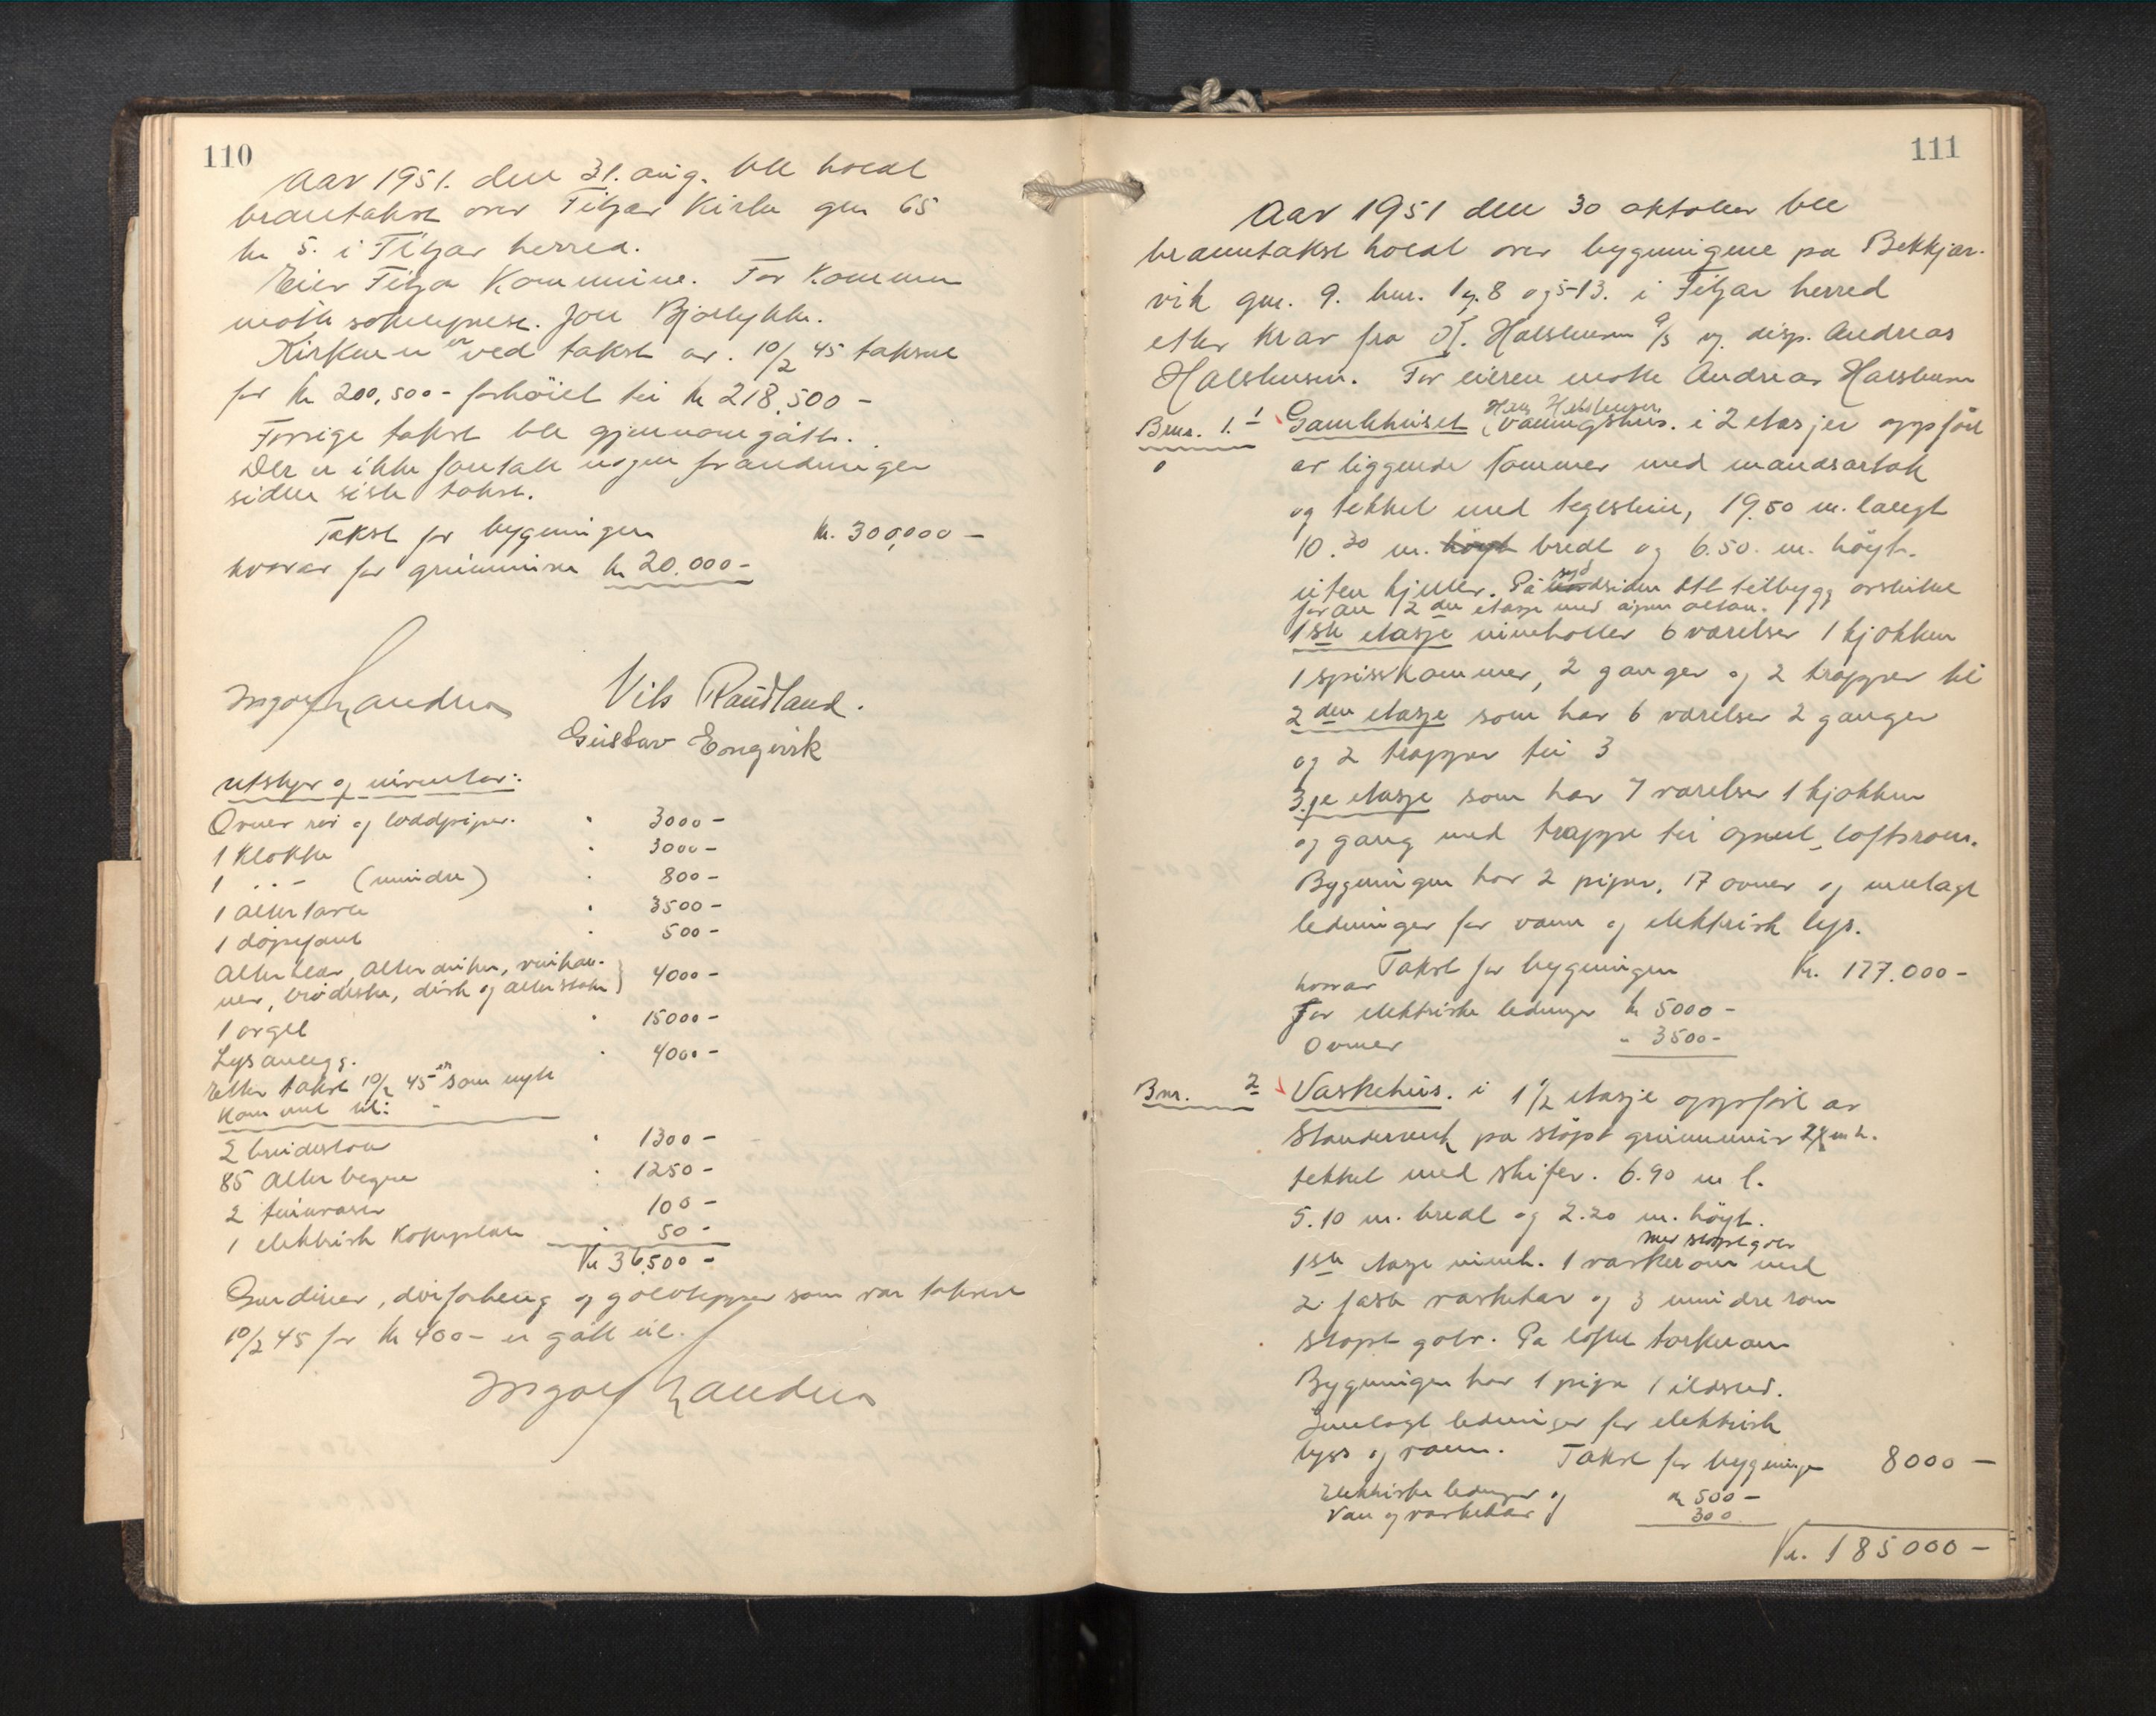 110
Aar 1951. den 31. aug. ble holdt
branntakst over Fitjar Kirke gnr 65
bnr 5. i Fitjar herred.
Eier Fitja Kommune. For Kommun
møtte soknepresr. Jon Bjørlykke.
Kirken er ved takst av. 10/2 45 taksert
for kr 200,500- forhöiet til kr 218,500 -
Forrige takst ble gjennomgått.
Der er ikke foretatt nogen forandringer
siden siste takst.
Takst for bygningen kr. 300,000 -
hvorav for grunnmur kr 20.000-
Ingolf Landro
Nils Raudland.
Gustav Engevik
Utstyr og inventar:
Ovner rör og loddpiper. " 3000 -
1 Klokke " 3000 -
1 " - (mindre) " 800 -
1 altertavle " 3500 -
1 døpefont " 500 -
Alterklær, alterduker, vinkan-
ner, brødeske, disk og alterstaker } 4000 -
1 orgel " 15000 -
Lysanlegg. " 4000 -
Etter takst 10/2 45 er som nytt
kommet til:
2 brudestoler " 1300 -
85 Alterbegre " 1250 -
2 vaser 100 -
1 elektrisk kokeplate " 50 -
Kr 36,500 -
Gardiner, dörforheng og golvtepper som var taksert
10/2 45 for kr 400- er gått ut.
Ingolf Landro
111
Aar 1951 den 30 oktober ble
branntakst holdt over bygningene på Bekkjar-
vik gnr. 9. bnr. 1 og 8 og 5-13. i Fitjar herred
etter krav fra O. T. Halshusen a/s og disp. Andreas
Halshusen. For eieren møtte Andreas Halshusen
Hans Halshusen
Bnr. 1. 1 Gamlehuset (våningshus. i 2 etasjer oppfört
av liggende tømmer med mansartak
og tekket med teglstein, 19.50 m. langt
10.30 m. høgt bredt og 6.50. m. höyt.
uten kjeller. På nordsiden syd ett tilbygg avsluttet
foran 2den etasje med åpen altan.
1ste etasje inneholder 6 værelser 1 kjøkken
1 spisskammer, 2 ganger og 2 trapper til
2den etasje som har 6 værelser 2 ganger
og 2 trapper til 3
3.je etasje som har 7 værelser 1 kjøkken
og gang med trappe til åpent loftsrom.
Bygningen har 2 piper, 17 ovner og innlagt
ledninger for vann og elektrisk lys.
Takst for bygningen Kr. 177.000 -
hvorav
For elektriske ledninger kr 5000 -
Ovner " 3500 -
Bnr. 2 Vaskehus. i 1 1/2 etasje oppført av
Standerverk på stöpt grunnmur
tekket med skifer. 6.90 m l.
5.10 m. bredt og 2.20 m. höyt.
med stöpt golv
1ste etasje inneh. 1 vaskerom med
2 faste vaskekar og 3 mindre rom
stöpt golv. På loftet tørkerom
Bygningen har 1 pipe 1 ildsted.
Innlagt ledninger for elektrisk
lyss og vann. Takst for bygningen 8000 -
Elektriske ledninger og kr 500 -
Vann og vaskekar 300
Kr. 185000 -